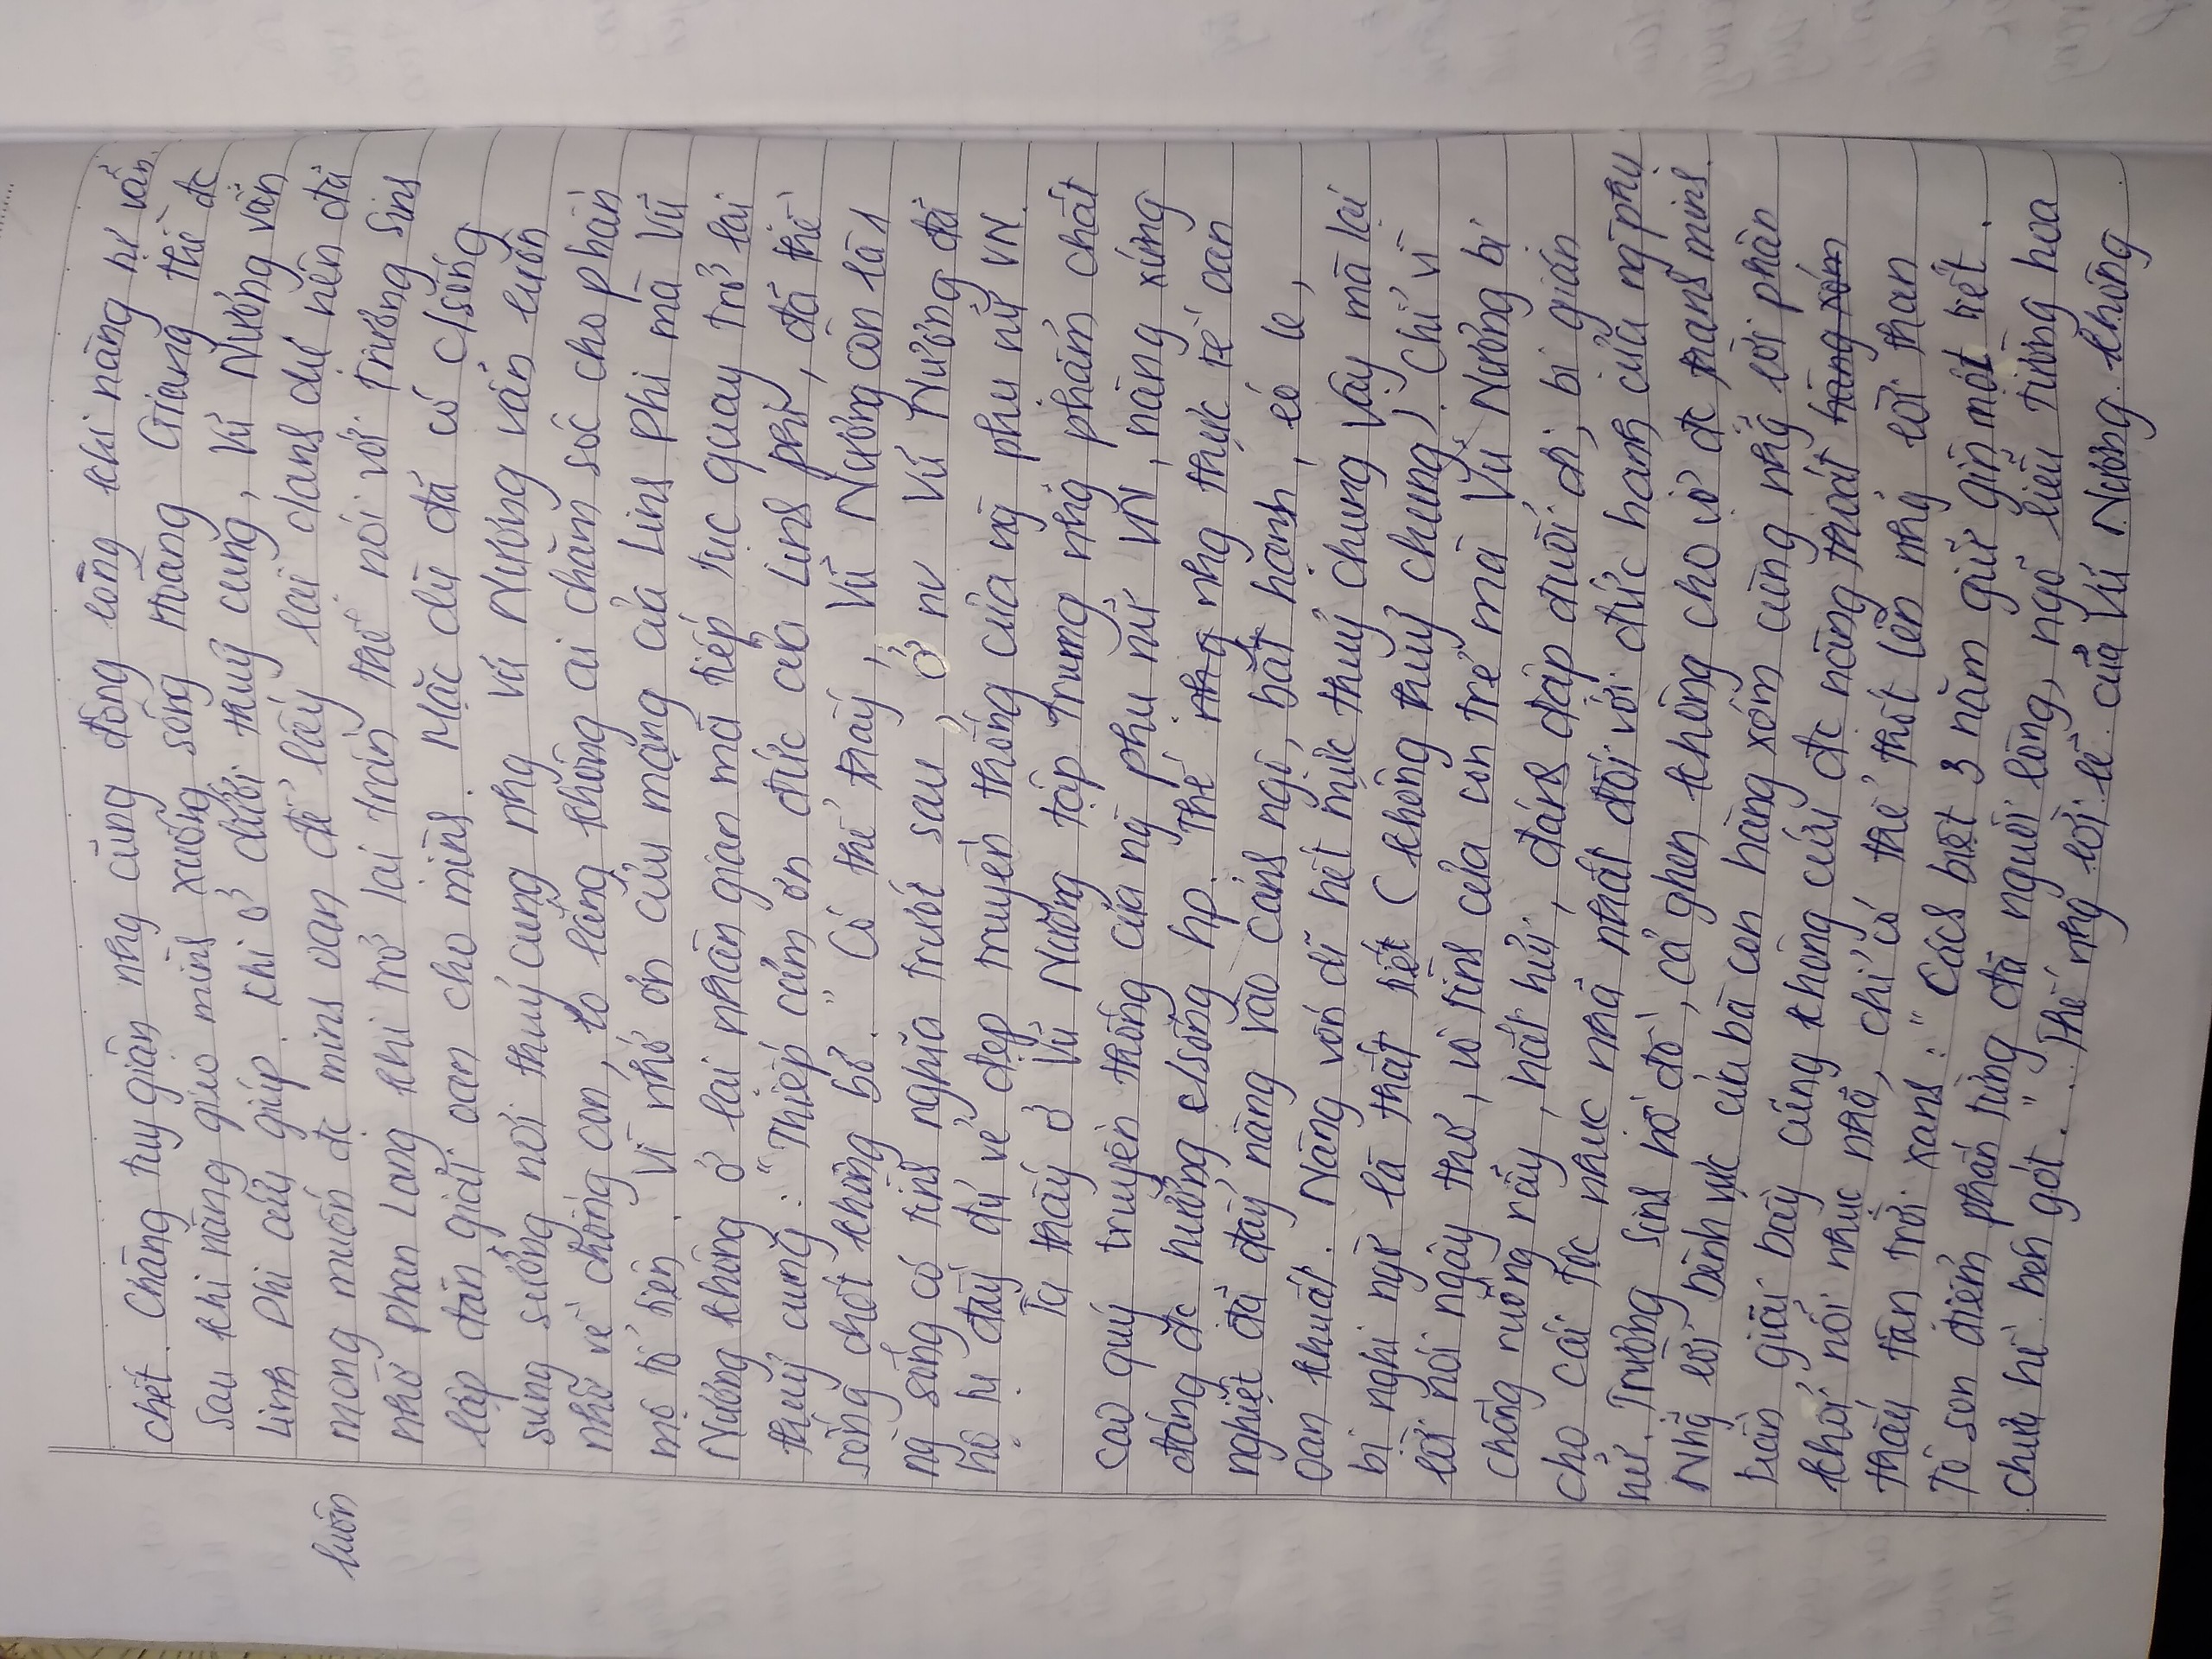 chết. Chàng tuy giận nhg cũng động lòng khi nàng tự vẫn.
Sau khi nàng gieo mình xuống sông Hoàng Giang thì đc
Linh Phi cứu giúp. Khi ở dưới thuỷ cung, Vũ Nương vẫn
luôn
mong muốn đc minh oan để lấy lại danh dự nên đã
nhờ Phan Lang khi trở lại trần thế nói với Trương Sinh
lập đàn giải oan cho mình. Mặc dù đã có c/sống
sung sướng nơi thuỷ cung nhg Vũ Nương vẫn luôn
nhớ về chồng con, lo lắng không ai chăm sóc cho phần
mộ tổ tiên. Vì nhớ ơn cứu mạng của Linh Phi mà Vũ
Nương không ở lại nhân gian mà tiếp tục quay trở lại
thuỷ cung: "Thiếp cảm ơn đức của Linh phi, đã thề
sống chết không bỏ." Có thể thấy, Vũ Nương còn là 1
ng sống có tình nghĩa trước sau, ở nv Vũ Nương đã
hộ tụ đầy đủ vẻ đẹp truyền thống của ng phụ nữ VN.
Ta thấy ở Vũ Nương tập trung nhg phẩm chất
cao quý truyền thống của ng phụ nữ VN, nàng xứng
đáng đc hưởng c/sống hp. Thế nhg nhg thực tế oan
nghiệt đã đẩy nàng vào cảnh ngộ, bất hạnh, éo le,
oan khuất. Nàng vốn dĩ hết mực thuỷ chung vậy mà lại
bị nghi ngờ là thất tiết (không thuỷ chung). Chỉ vì
lời nói ngây thơ, vô tình của con trẻ mà Vũ Nương bị
chồng ruồng rẫy, hắt hủi, đánh đập đuổi đi, bị gián
cho cái tộc nhục nhã nhất đối với đức hạnh của ng phụ
nữ. Trương Sinh hồ đồ, cả ghen không cho vợ đc thanh minh.
Nhg lời bênh vực của bà con hàng xóm cùng nhg lời phân
trần, giãi bày cũng không cứu đc nàng thoát hàng xóm
khỏi nỗi nhục nhã, chỉ có thể thốt lên nhg lời than
thấu tận trời xanh: "Cách biệt 3 năm giữ gìn một tiết.
Tô son điểm phấn từng đã nguôi lòng, ngõ liễu tường hoa
chưa hề bén gót.". Thế nhg lời lẽ của Vũ Nương không